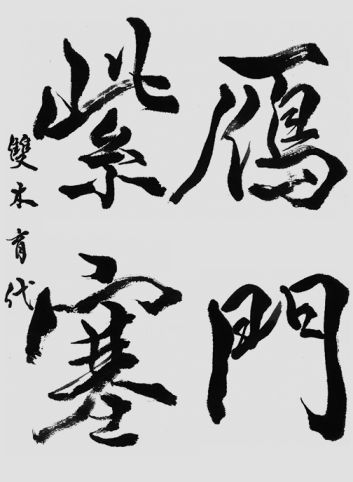 雁門
紫塞
雙木育代